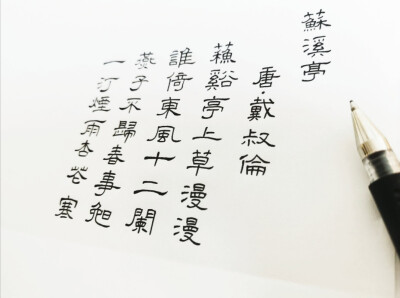 蘇溪亭
唐·戴叔倫
蘓谿亭上草漫漫
誰倚東風十二闌
燕子不歸春事晚
一汀煙雨杏花寒